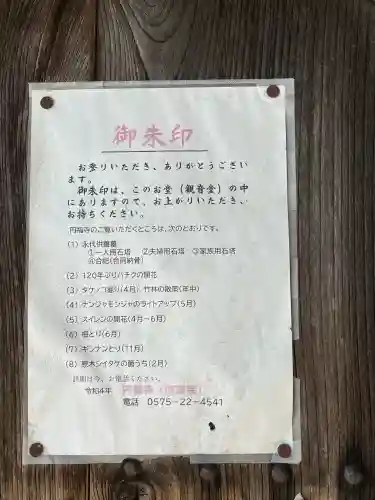 御朱印
お登りいただき、ありがとうござい
ます。
御朱印は、このお堂（観音堂）の中
にありますので、お上がりいただき、
お持ちください。
円福寺のご覧いただくところは、次のとおりです。
(1) 永代供養墓
①一人用石塔　②夫婦用石塔　③家族用石塔
④合祀(合同納骨)
(2) 120年ぶりハチクの開花
(3) タケノコ掘り(4月)、竹林の散策(年中)
(4) ナンジャモンジャのライトアップ(5月)
(5) スイレンの開花(4月～6月)
(6) 梅とり(6月)
(7) ギンナンとり(11月)
(8) 原木シイタケの菌うち(2月)
詳細は今、お電話ください。
令和4年　円福寺
電話　0575-22-4541